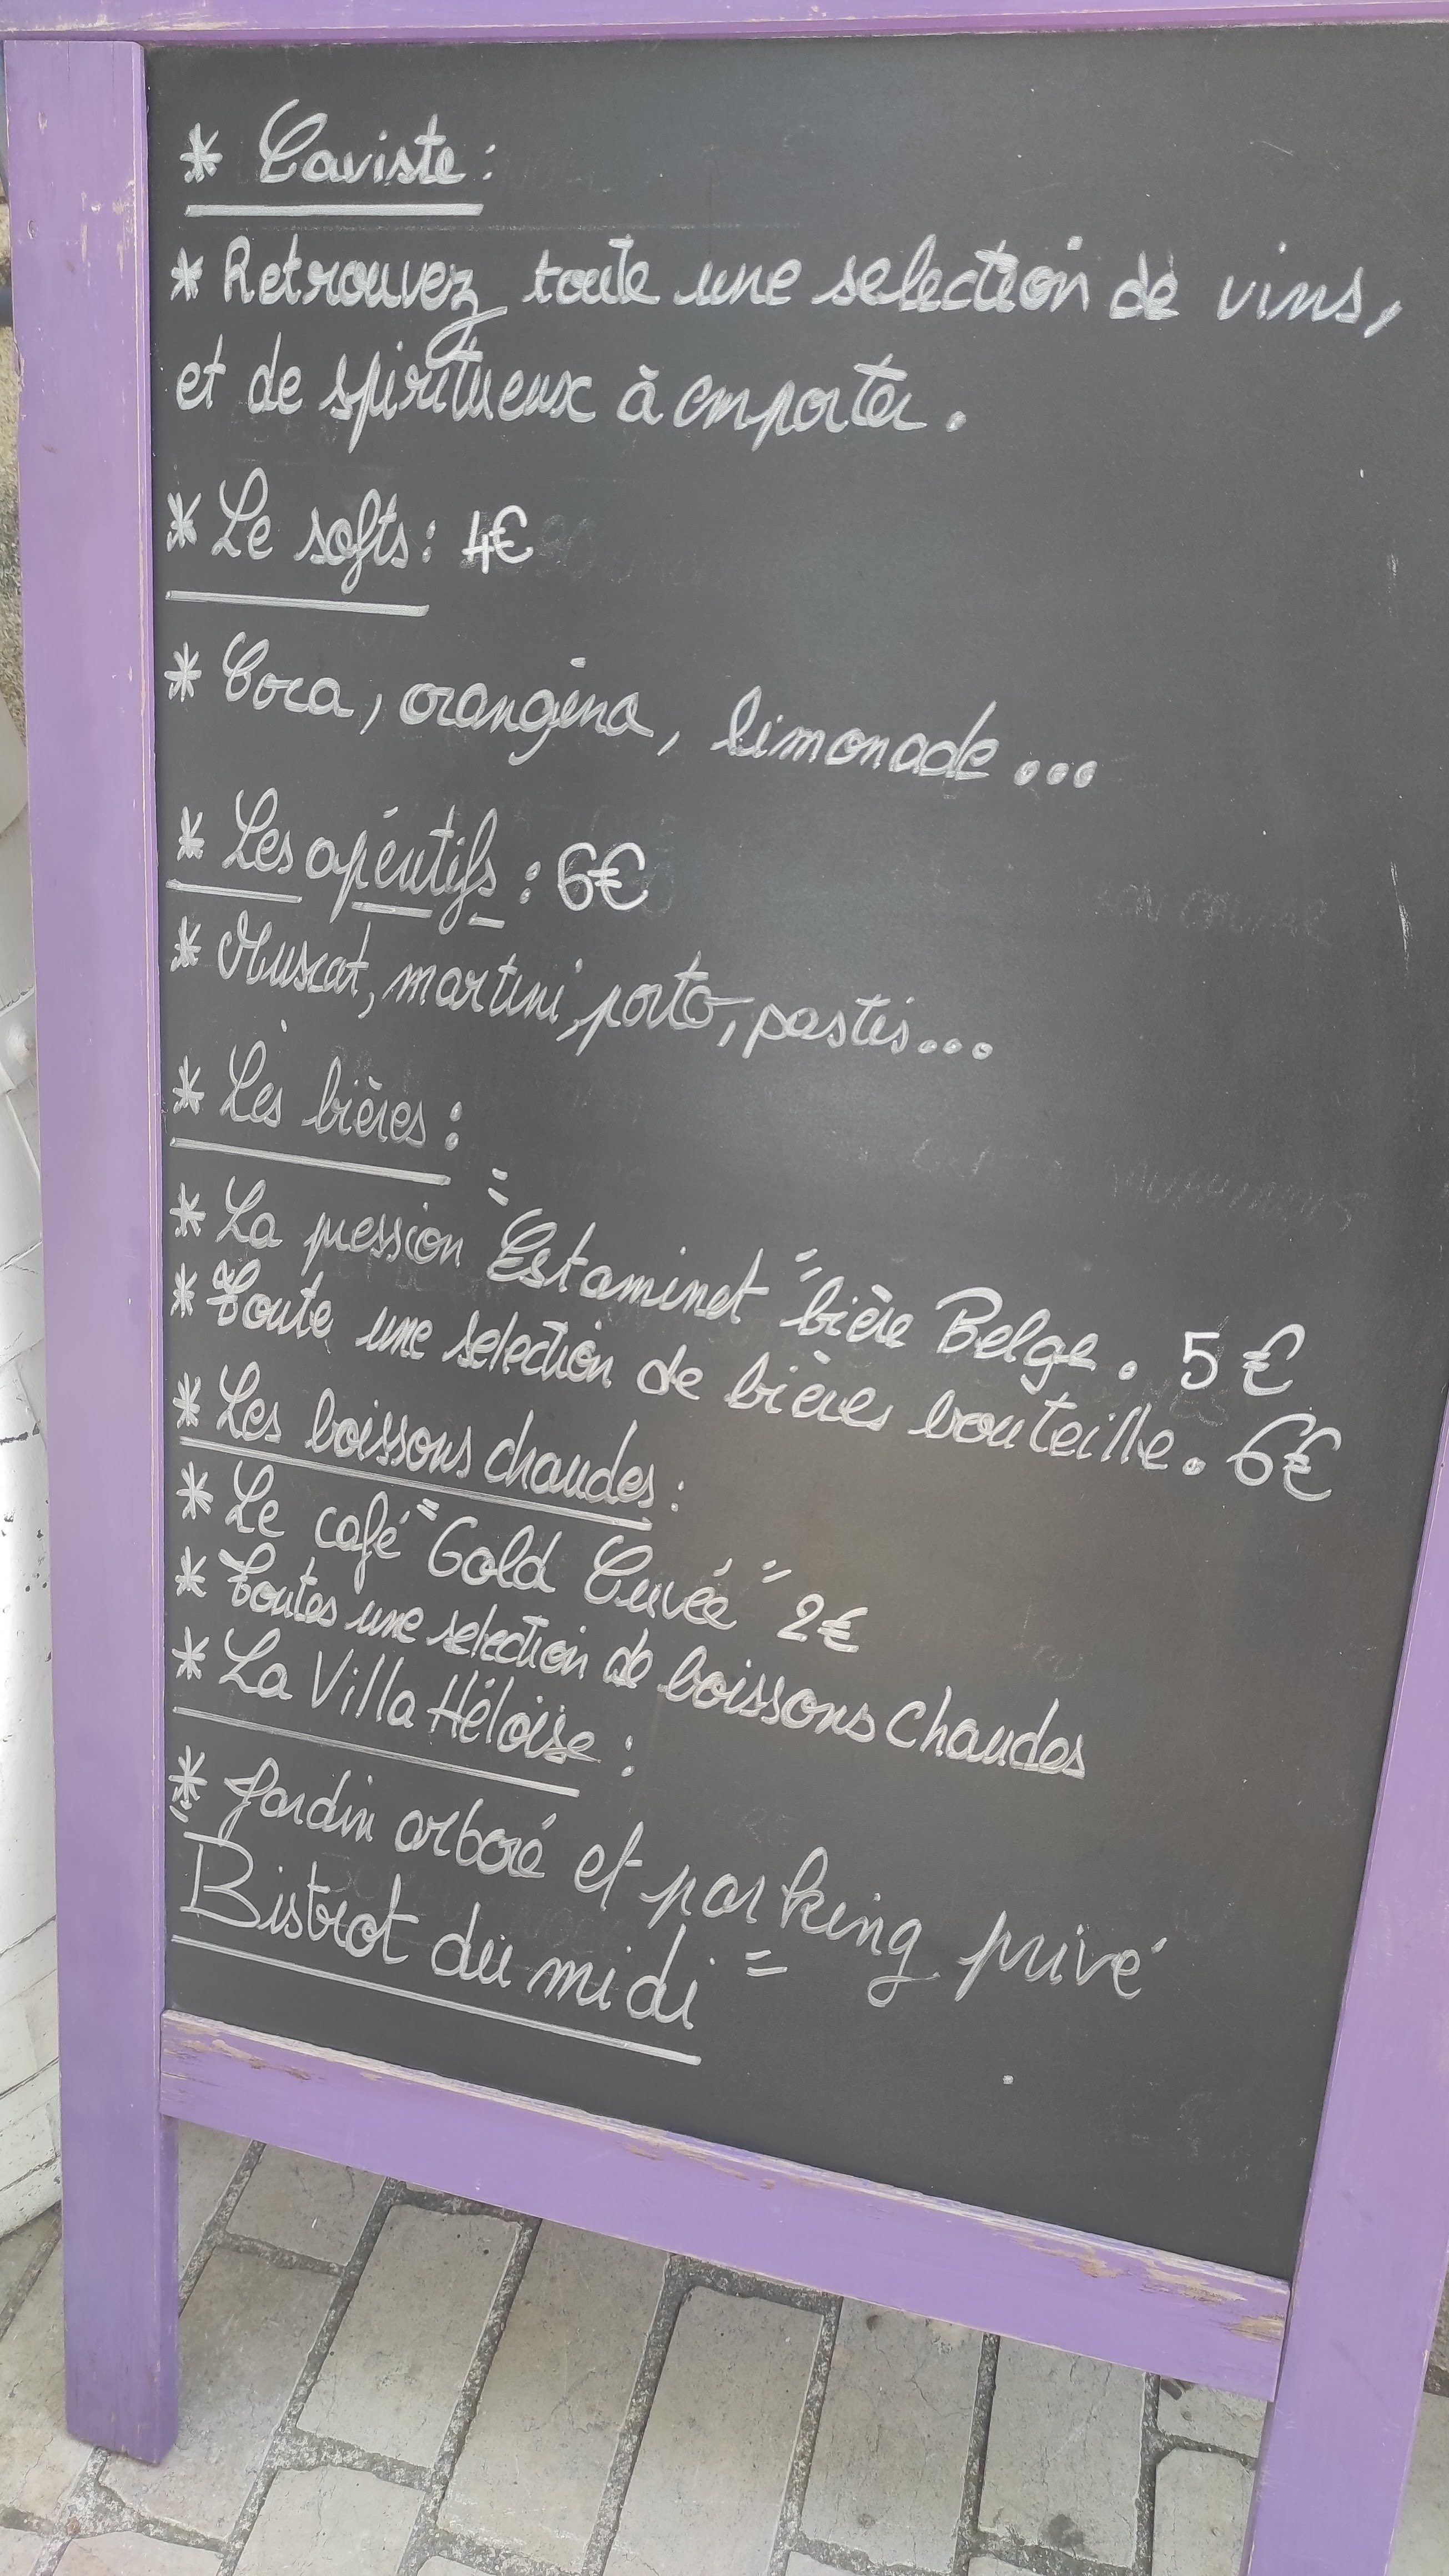 * Caviste :
* Retrouvez toute une selection de vins,
et de spiritueux à emporter.
* Le softs : 4€
* Coca, orangina, limonade...
* Les apéritifs : 6€
* Muscat, martini, porto, pastis...
* Les bières :
* La pression "Estaminet" bière Belge. 5€
* Toute une selection de bières bouteille. 6€
* Les boissons chaudes :
* Le café "Gold Cuvéé" 2€
* Toutes une selection de boissons chaudes
* La Villa Héloïse :
* Jardin arboré et parking privé
"Bistrot du midi"